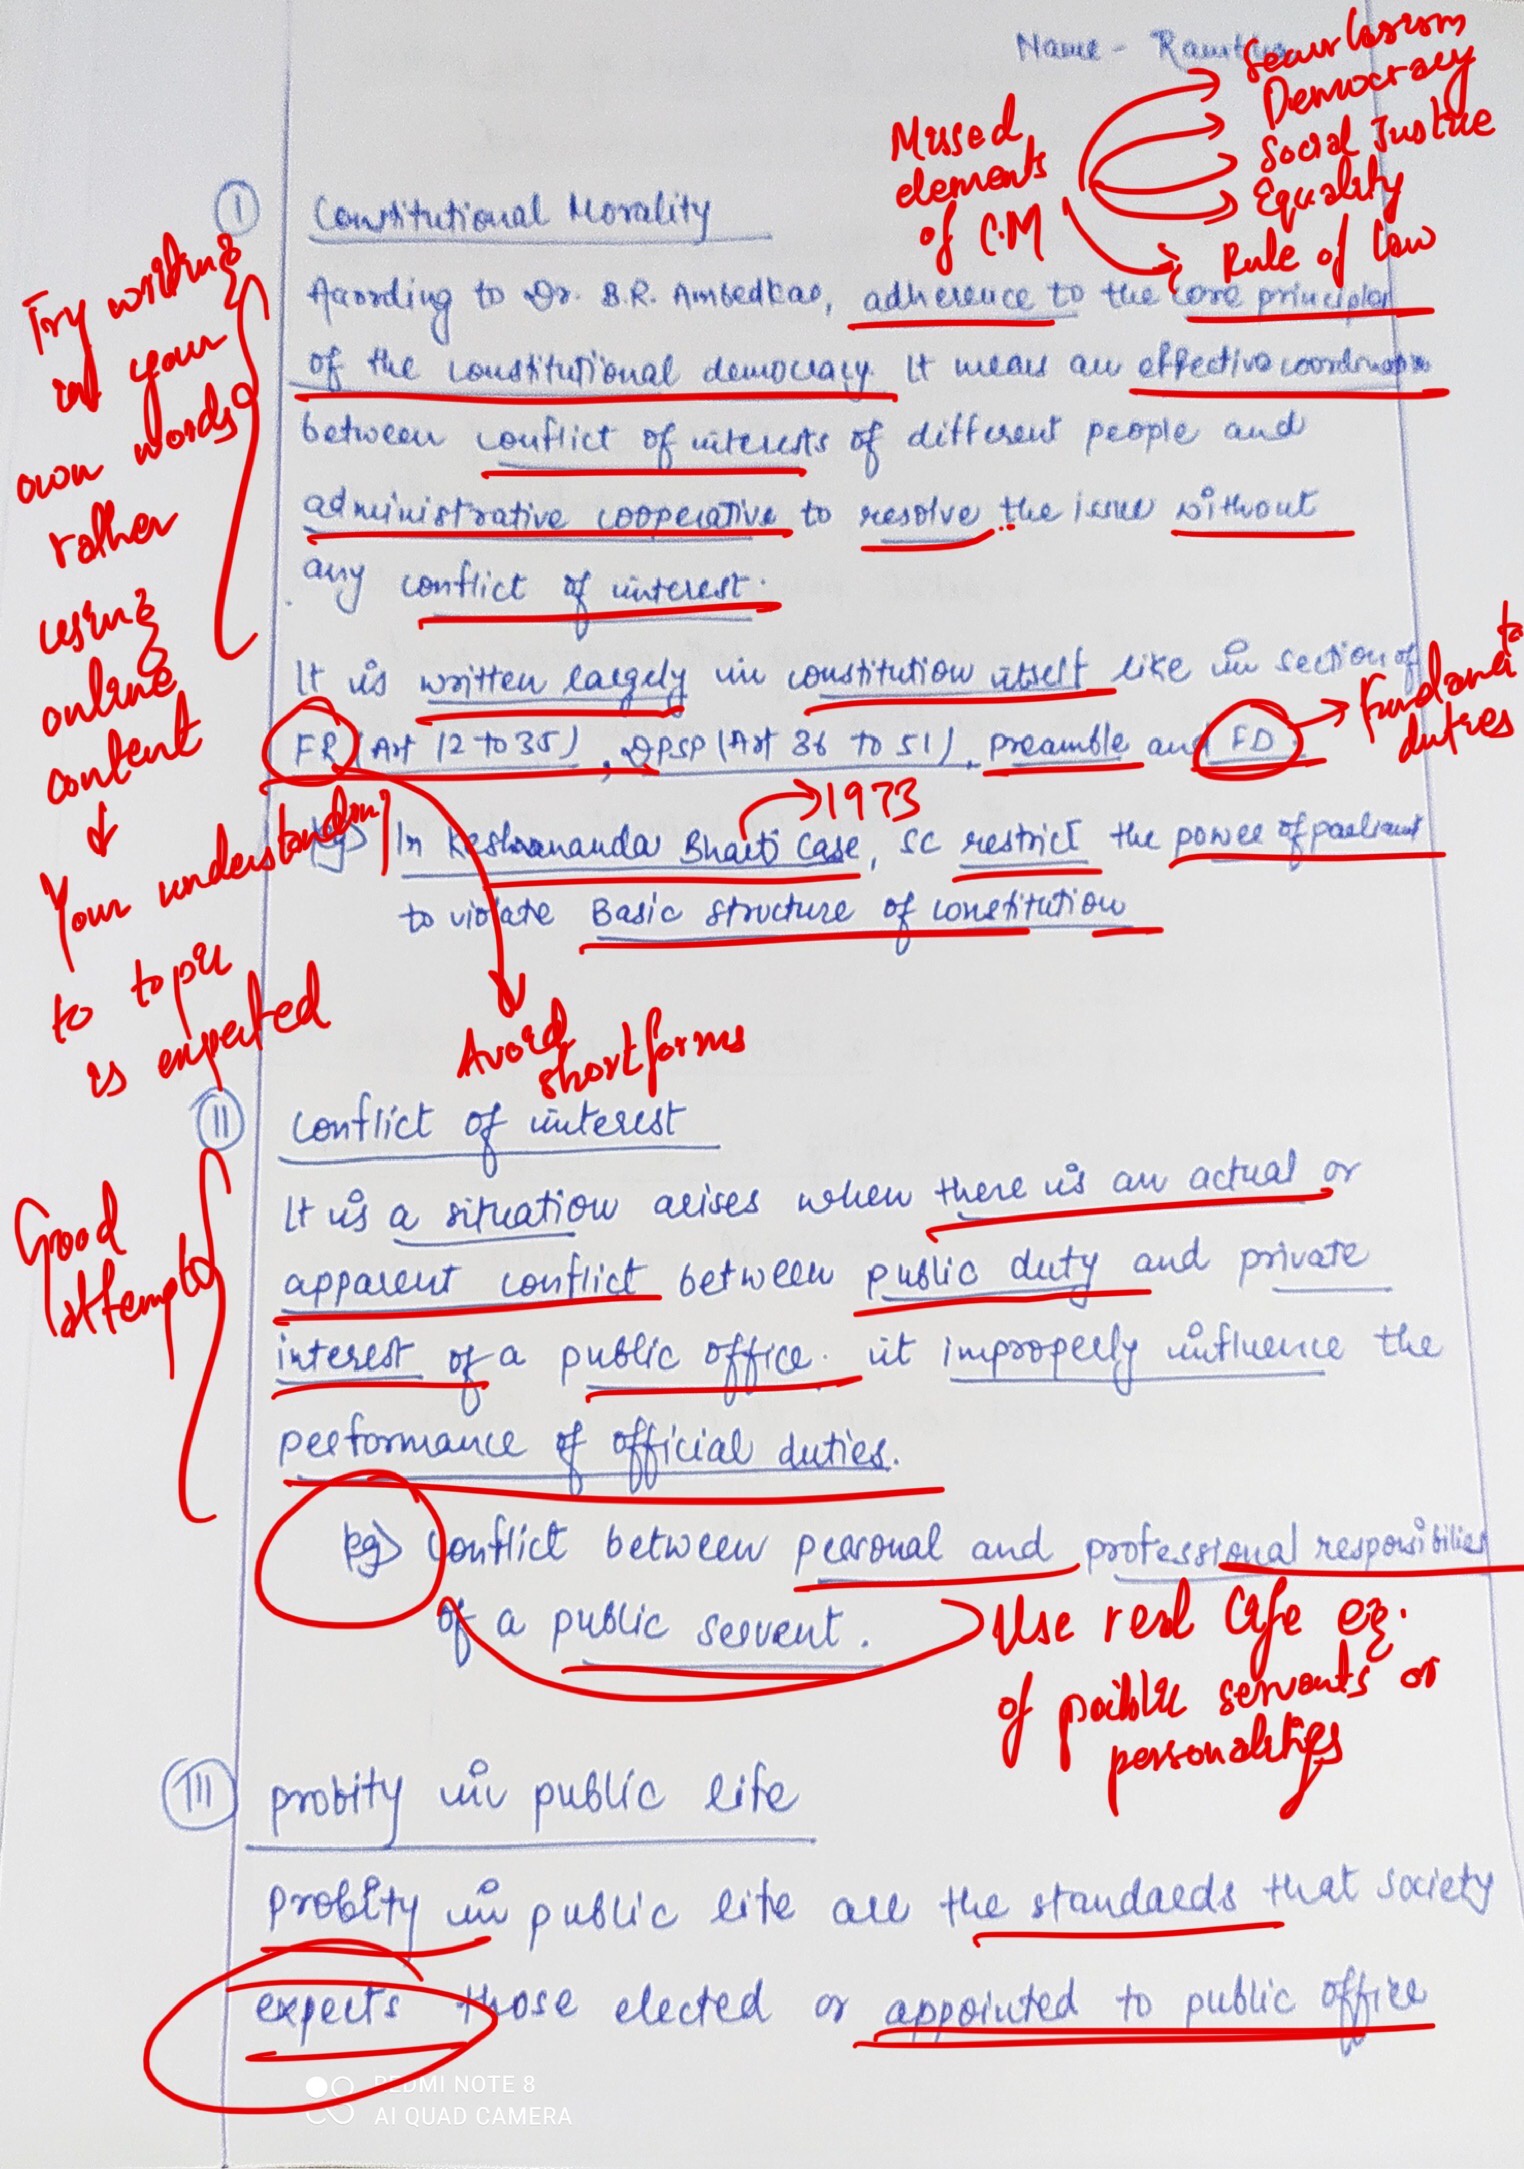 Name -
Secularism
Democracy
Social Justice
Equality
Rule of law
Missed
elements
of C.M
① Constitutional Morality
According to Dr. B.R. Ambedkar, adherence to the core principles
of the constitutional democracy. It means an effective coordination
between conflict of interests of different people and
administrative cooperative to resolve the issue without
any conflict of interest.
Try writing
in your
own words
rather
using
online
content
↓
Your understanding
to topic
is expected
It is written largely in constitution itself like in section of
FR (Art 12 to 35), DPSP (Art 36 to 51), preamble and FD.
Fundamental
duties
1973
Eg) In Keshwananda Bharti Case, SC restrict the power of parliament
to violate Basic structure of constitution
Avoid
shortforms
⑪ Conflict of interest
It is a situation arises when there is an actual or
apparent conflict between public duty and private
interest of a public office. it improperly influence the
performance of official duties.
Good
attempt
Eg) Conflict between personal and professional responsibilies
of a public servent.
Use real life ex.
of public servants or
personalities
III probity in public life
Probity in public life are the standards that society
expects those elected or appointed to public office
REDMI NOTE 8
AI QUAD CAMERA